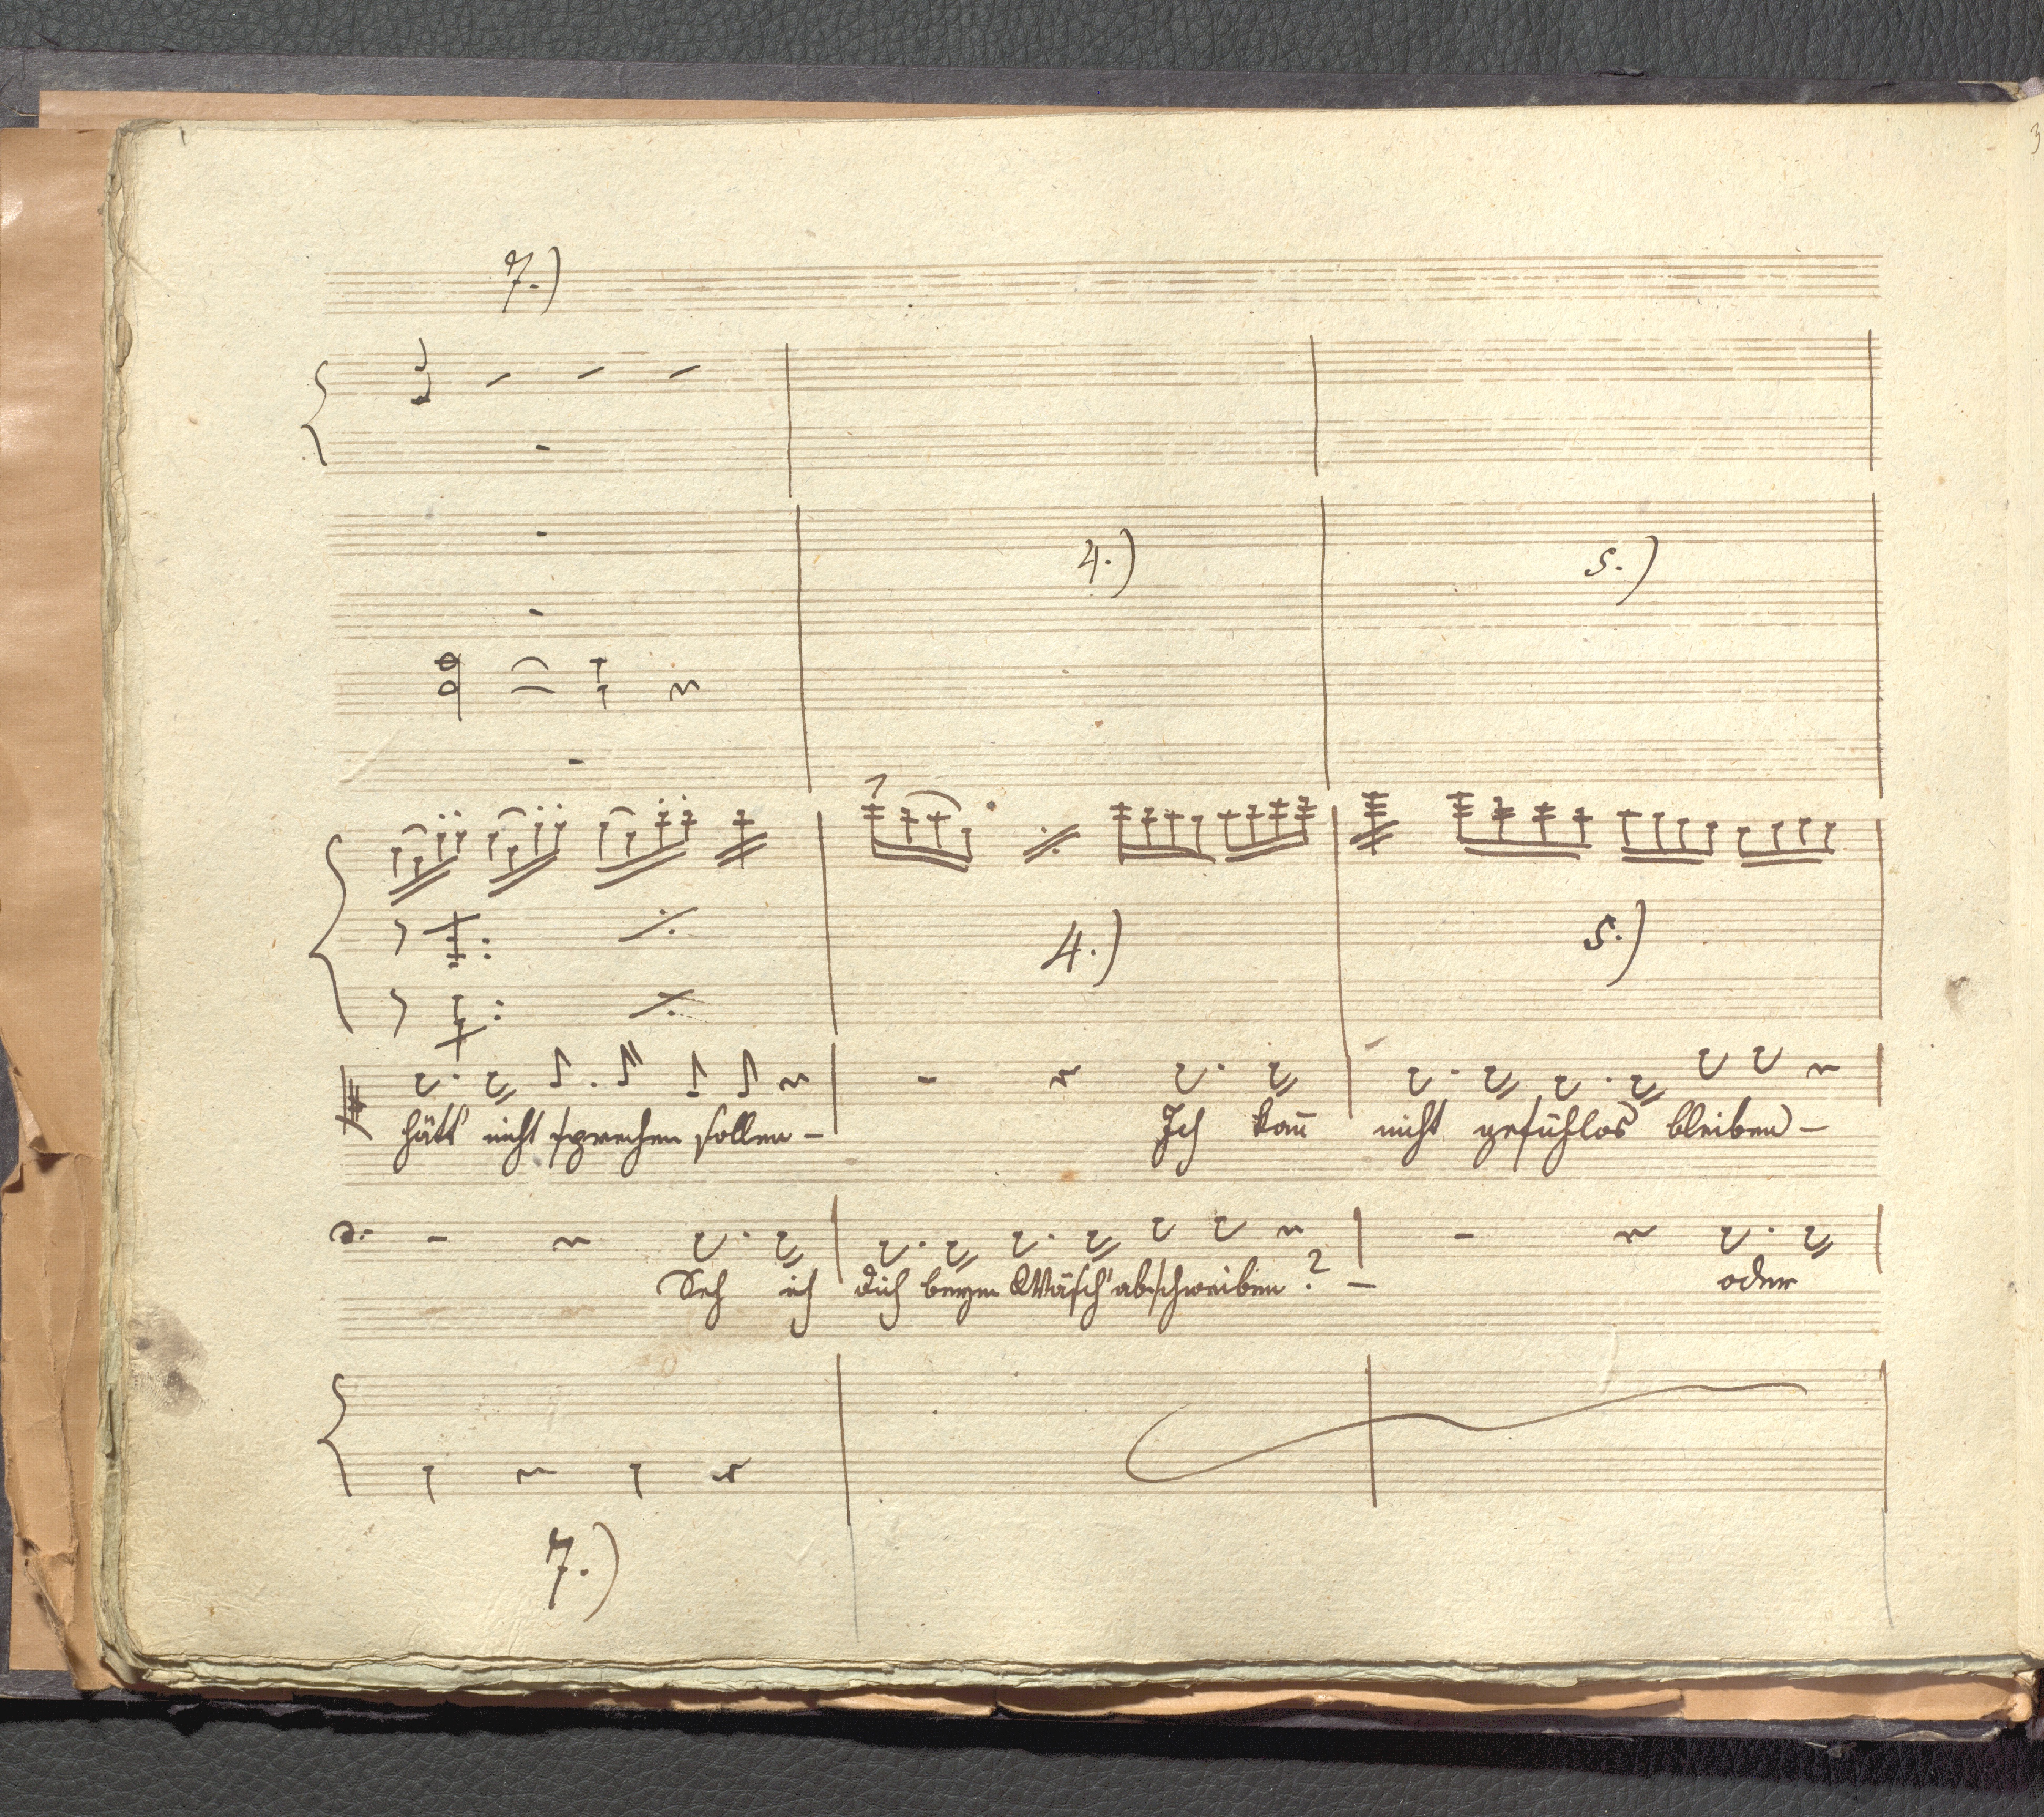 3
7.)
4.) 5.)
4.) 5.)
hätt' nicht sprechen sollen – Ich kan̄ nicht gefühlos bleiben –
Seh ich dich beym Wäsch' abschweiben? – oder
7.)